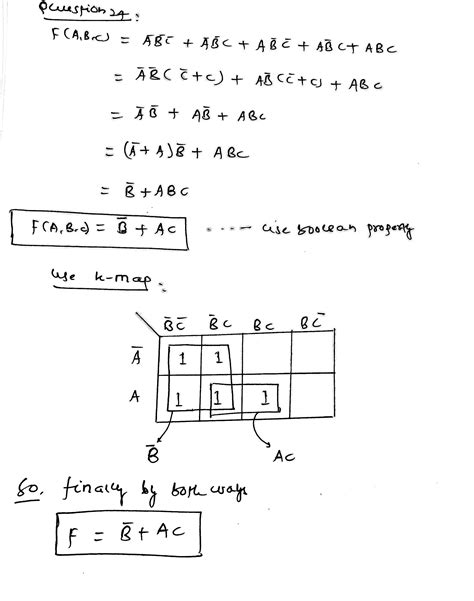 Question 24:
F(A,B,C) = A̅B̅C̅ + A̅B̅C + AB̅C̅ + AB̅C + ABC
= A̅B̅(C̅+C) + AB̅(C̅+C) + ABC
= A̅B̅ + AB̅ + ABC
= (A̅+A)B̅ + ABC
= B̅ + ABC
F(A,B,C) = B̅ + AC ..... use boolean property
use k-map:
B̅C̅ B̅C BC BC̅
A̅ 1 1
A 1 1 1
B̅ AC
So, finally by both ways
F = B̅ + AC